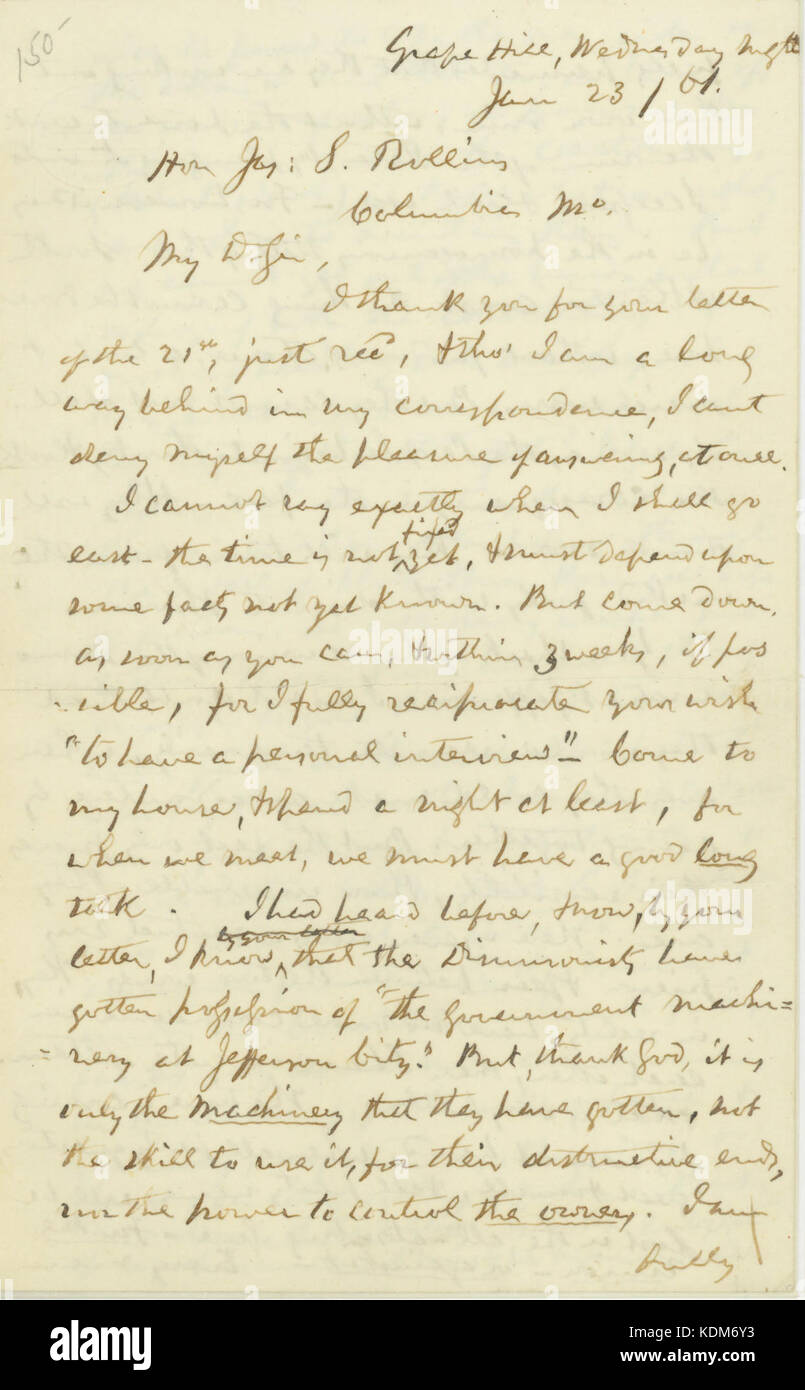 150
Grape Hill, Wednesday night
Jan 23/61.
Hon Jas: S. Rollins
Columbia Mo.
My D. Sir,
I thank you for your letter
of the 21st, just recd, & tho' I am a long
way behind in my correspondence, I cant
deny myself the pleasure of answering, at once.
I cannot say exactly when I shall go
east - the time is not fixed yet, & must depend upon
some facts not yet known. But come down,
as soon as you can, & within 3 weeks, if pos
sible, for I fully reciprocate your wish
"to have a personal interview" - Come to
my house, & spend a night at least, for
when we meet, we must have a good long
talk. I had heard before, & now, by your
letter, I know, by your letter that the Disunionists have
gotten possession of "the government machi=
=nery at Jefferson City." But, thank God, it is
only the machinery that they have gotten, not
the skill to use it, for their destructive ends,
nor the power to control the owners. I am
fully
alamy
alamy
alamy
alamy
Image ID: KDM6Y3
www.alamy.com